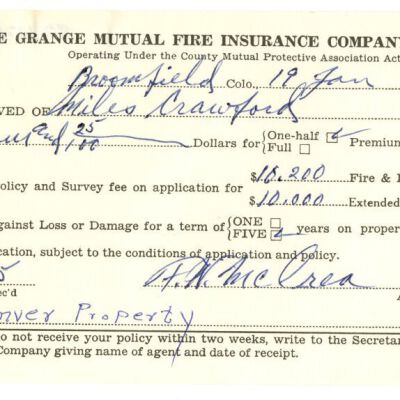 E GRANGE MUTUAL FIRE INSURANCE COMPANY
Operating Under the County Mutual Protective Association Act
Broomfield Colo. 19 Jan
VED OF Miles Crawford
and 25/100 Dollars for One-half Full Premium
olicy and Survey fee on application for $16.200 Fire &
$10.000 Extended
gainst Loss or Damage for a term of ONE FIVE years on prope
cation, subject to the conditions of application and policy.
5 McCrea
ec'd A
nver Property
o not receive your policy within two weeks, write to the Secreta
Company giving name of agent and date of receipt.